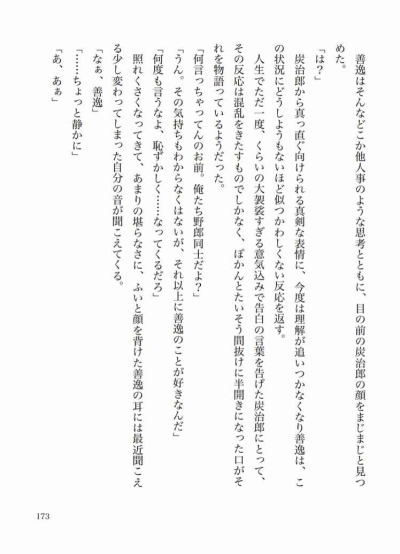 善逸はそんなどこか他人事のような思考とともに、目の前の炭治郎の顔をまじまじと見つ
めた。
「は？」
炭治郎から真っ直ぐ向けられる真剣な表情に、今度は理解が追いつかなくなり善逸は、こ
の状況にどうしようもないほど似つかわしくない反応を返す。
人生でただ一度、くらいの大袈裟すぎる意気込みで告白の言葉を告げた炭治郎にとって、
その反応は混乱をきたすものでしかなく、ぽかんとたいそう間抜けに半開きになった口がそ
れを物語っているようだった。
「何言っちゃってんのお前。俺たち野郎同士だよ？」
「うん。その気持ちもわからなくはないが、それ以上に善逸のことが好きなんだ」
「何度も言うなよ、恥ずかしく……なってくるだろ」
照れくさくなってきて、あまりの堪らなさに、ふいと顔を背けた善逸の耳には最近聞こえ
る少し変わってしまった自分の音が聞こえてくる。
「なぁ、善逸」
「……ちょっと静かに」
「あ、あぁ」
173